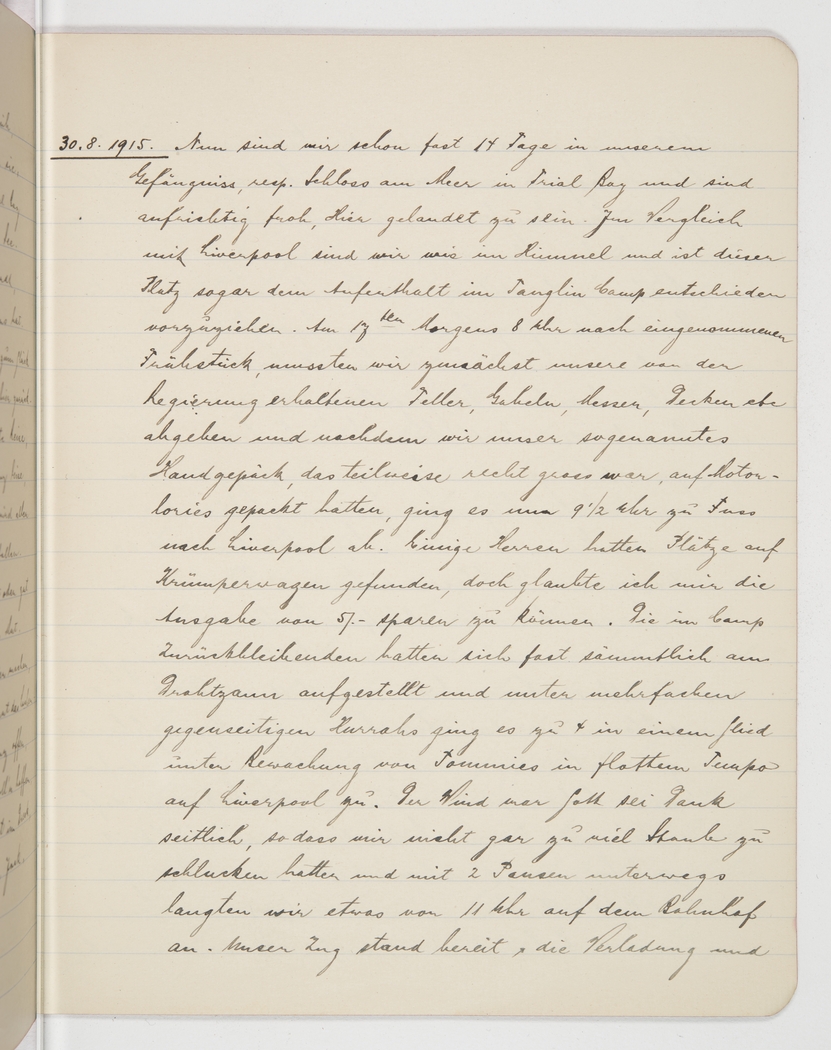 30.8.1915. Nun sind wir schon fast 14 Tage in unserem
Gefängniss, resp. Schloss am Meer in Trial Bay und sind
aufrichtig froh, hier gelandet zu sein. Im Vergleich
mit Liverpool sind wir wie im Himmel und ist dieser
Platz sogar dem Aufenthalt im Tanglin Camp entschieden
vorzuziehen. Am 17ten Morgens 8 Uhr nach eingenommenen
Frühstück, mussten wir zunächst unsere von der
Regierung erhaltenen Teller, Gabeln, Messer, Decken etc
abgeben und nachdem wir unser sogenanntes
Handgepäck, das teilweise recht gross war, auf Motor-
lories gepackt hatten, ging es um 9 1/2 Uhr zu Fuss
nach Liverpool ab. Einige Herren hatten Plätze auf
Krümperwagen gefunden, doch glaubte ich mir die
Ausgabe von 5/- sparen zu können. Die im Camp
Zurückbleibenden hatten sich fast sämmtlich am
Drahtzaun aufgestellt und unter mehrfachen
gegenseitigen Hurrahs ging es zu 4 in einem Glied
unter Bewachung von Tommies in flottem Tempo
auf Liverpool zu. Der Wind war Gott sei Dank
seitlich, sodass wir nicht gar zu viel Staub zu
schlucken hatten und mit 2 Pausen unterwegs
langten wir etwas vor 11 Uhr auf dem Bahnhof
an. Unser Zug stand bereit, die Verladung und